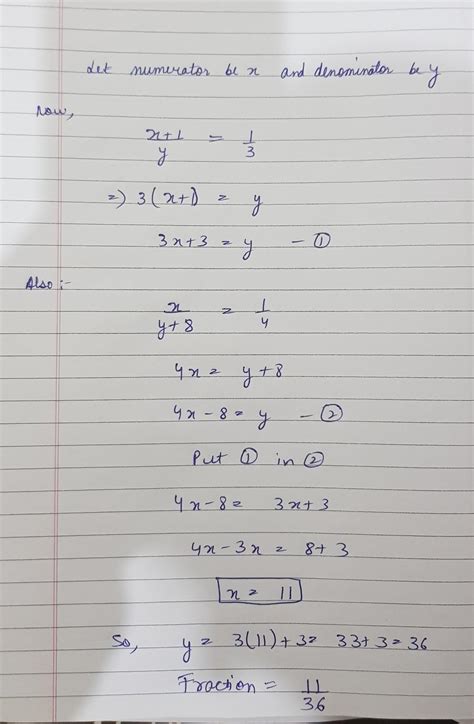 Let numerator be x and denominator be y
Now,
x+1/y = 1/3
=) 3(x+1) = y
3x+3 = y - ①
Also :-
x/y+8 = 1/4
4x = y+8
4x-8 = y - ②
Put ① in ②
4x-8 = 3x+3
4x-3x = 8+3
x = 11
So, y = 3(11)+3 = 33+3 = 36
Fraction = 11/36